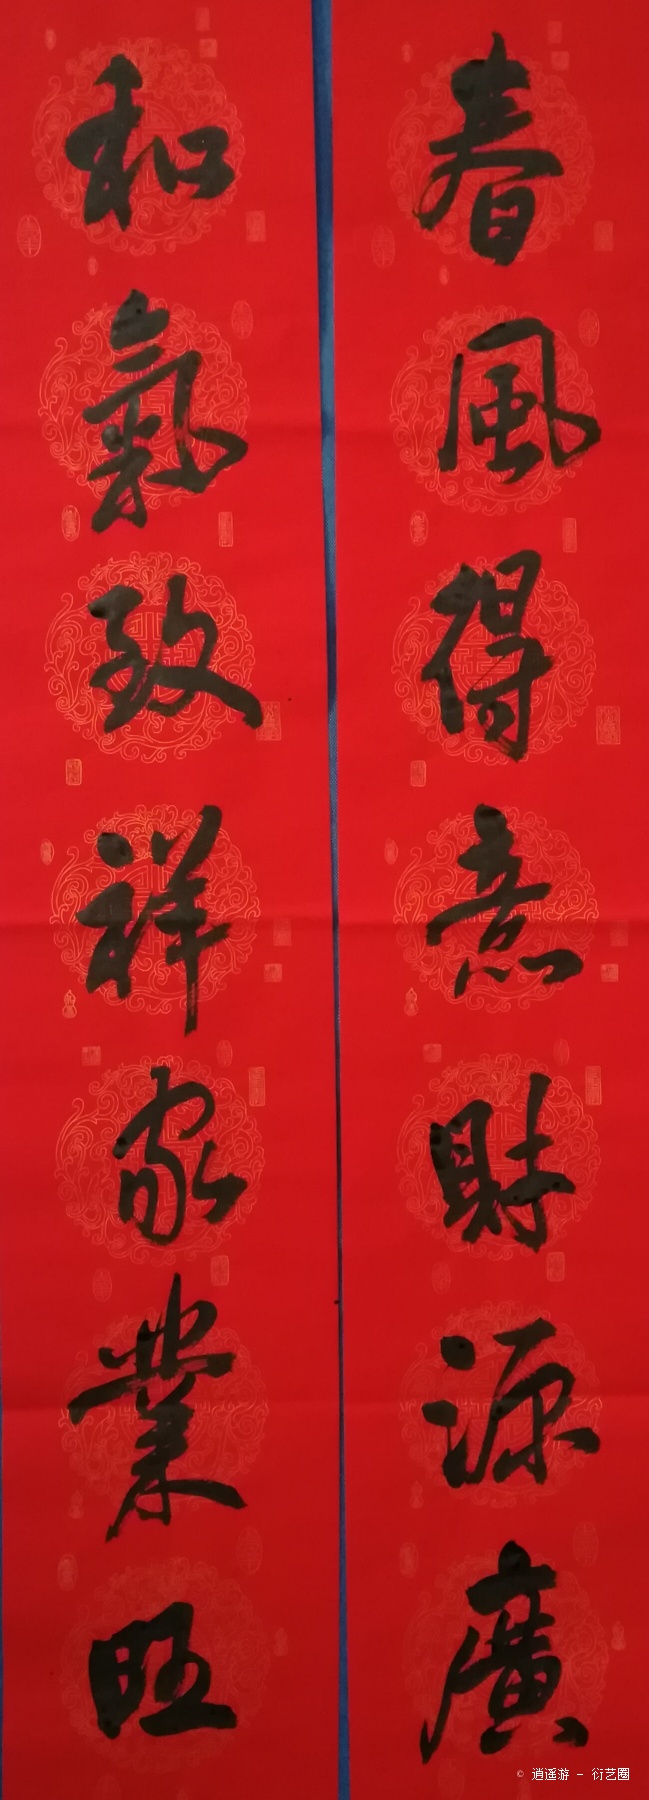 春風得意財源廣
和氣致祥家業旺
© 逍遥游 - 衍艺圈